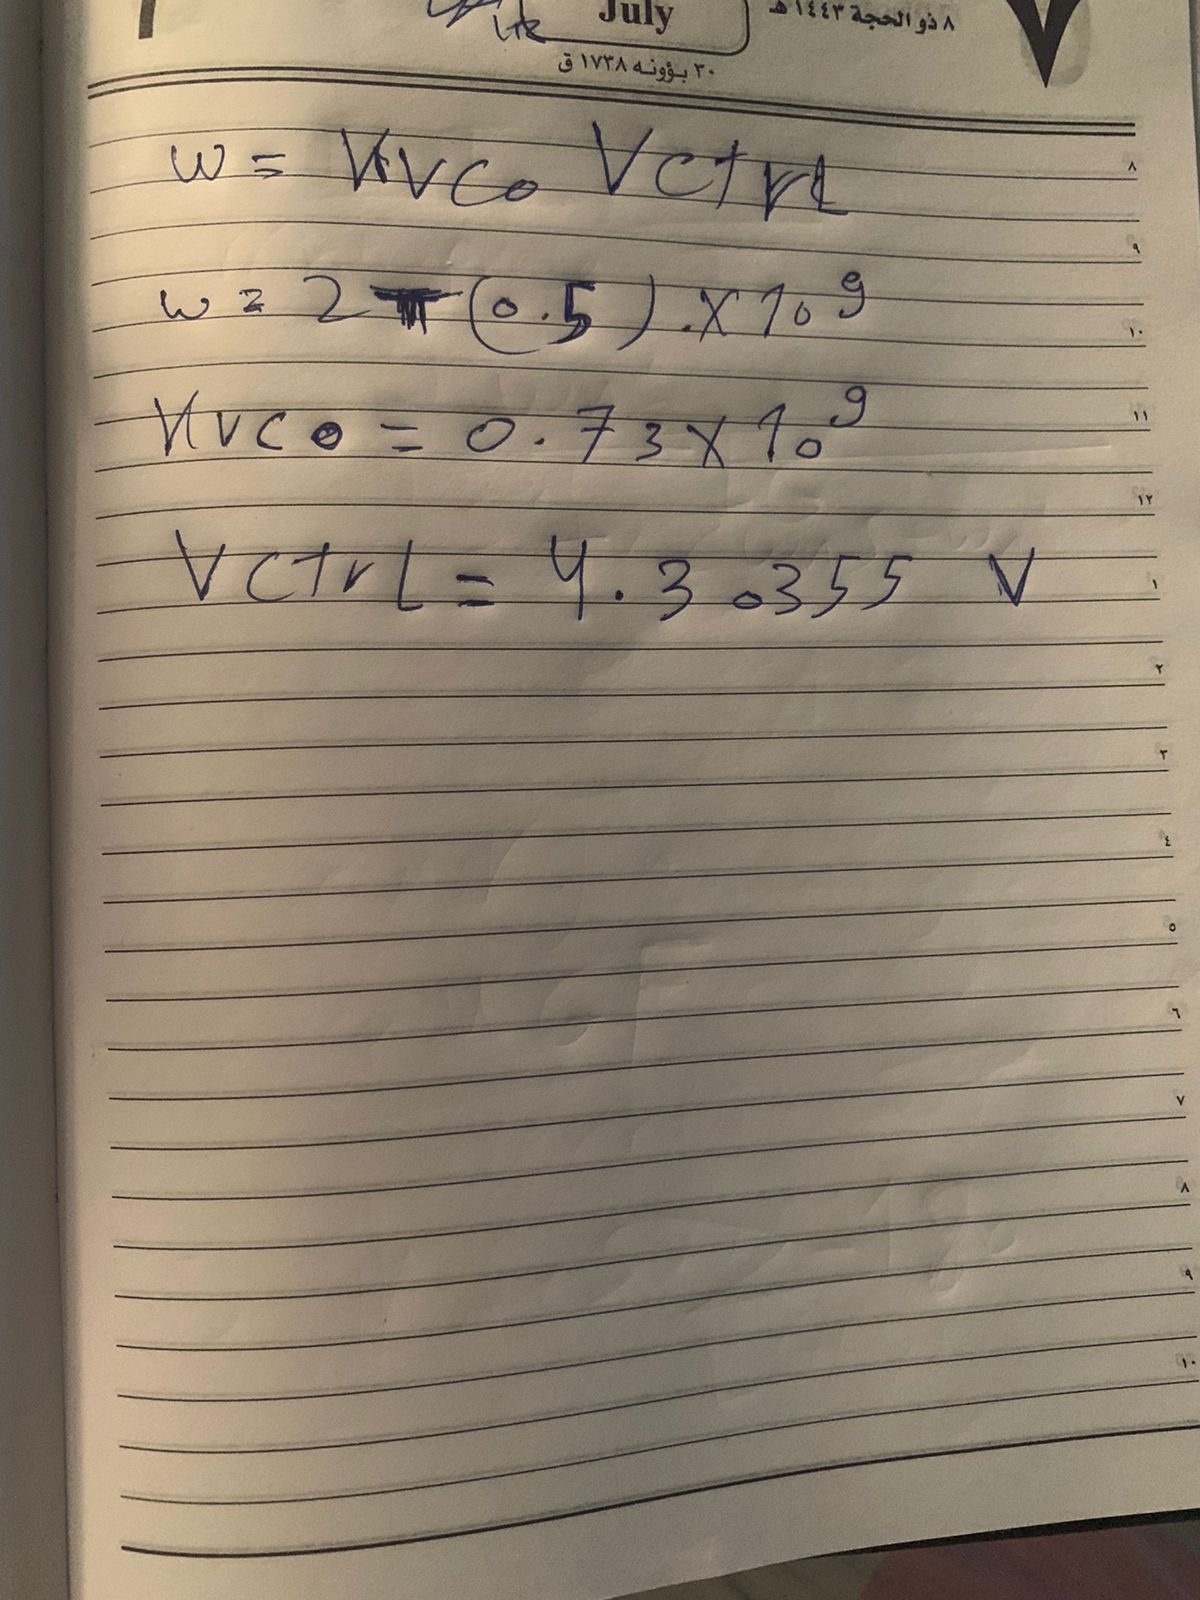 July
٨ ذو الحجة ١٤٤٣هـ
٣٠ بؤونه ١٧٣٨ ق
٧
w = Kvco Vctrl
w = 2π(0.5).x10^9
Kvco = 0.73x10^9
Vctrl = 4.30355 V
٨
٩
١٠
١١
١٢
١
٢
٣
٤
٥
٦
٧
٨
٩
١٠